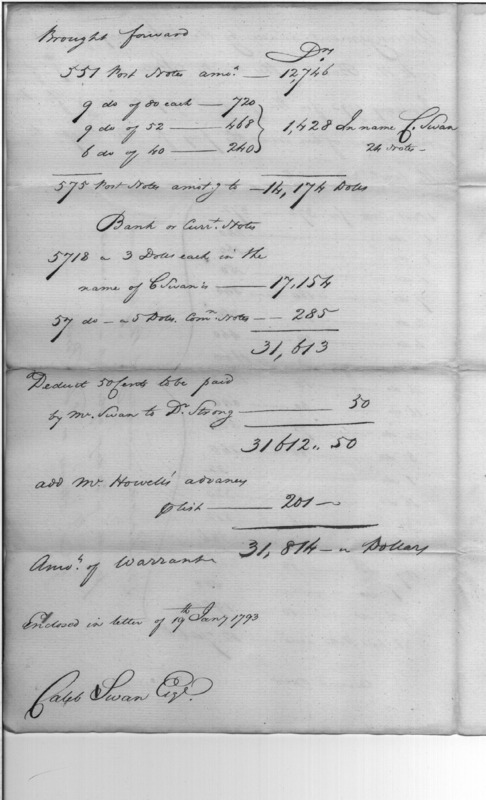 Brought forward
Drs
551 Post Notes amot. — 12,746
9 do of 80 each — 720
9 do of 52 — 468 } 1,428 In name C. Swan
6 do of 40 — 240 24 Notes —
575 Post Notes amotg to — 14,174 Dolls
Bank or Currt. Notes
5718 a 3 Dolls each in the
name of C Swan is — 17,154
57 do — a 5 Dolls. Comn. Notes — 285
31,613
Deduct 50 Cents to be paid
by Mr. Swan to Dr. Strong — 50
31612.. 50
add Mr. Howell's advance
p list — 201 —
31,814 — Dollars
Amot. of Warrant
Enclosed in letter of 19th Jany 1793
Caleb Swan Esqr.